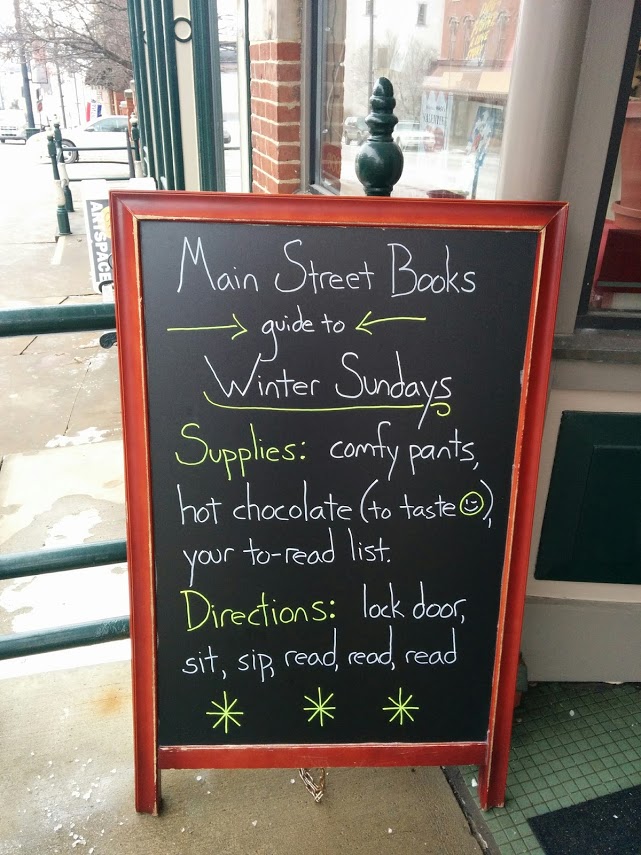 Main Street Books
guide to
Winter Sundays
Supplies: comfy pants,
hot chocolate (to taste),
your to-read list.
Directions: lock door,
sit, sip, read, read, read
ARTSPACE